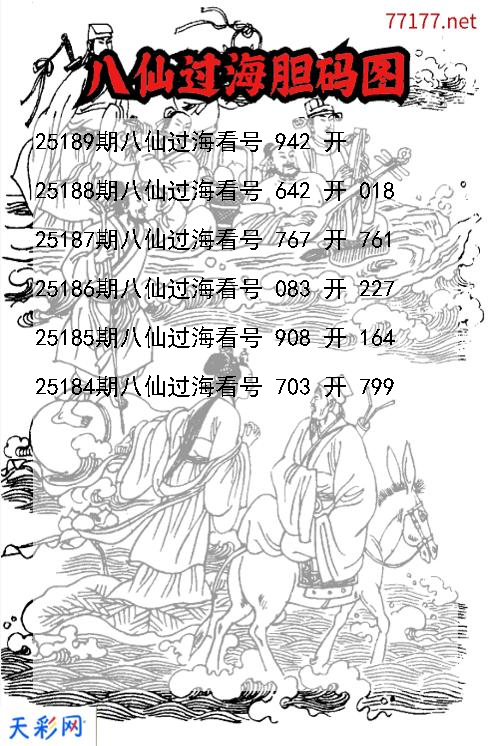 77177.net
八仙过海胆码图
25189期八仙过海看号 942 开
25188期八仙过海看号 642 开 018
25187期八仙过海看号 767 开 761
25186期八仙过海看号 083 开 227
25185期八仙过海看号 908 开 164
25184期八仙过海看号 703 开 799
天彩网